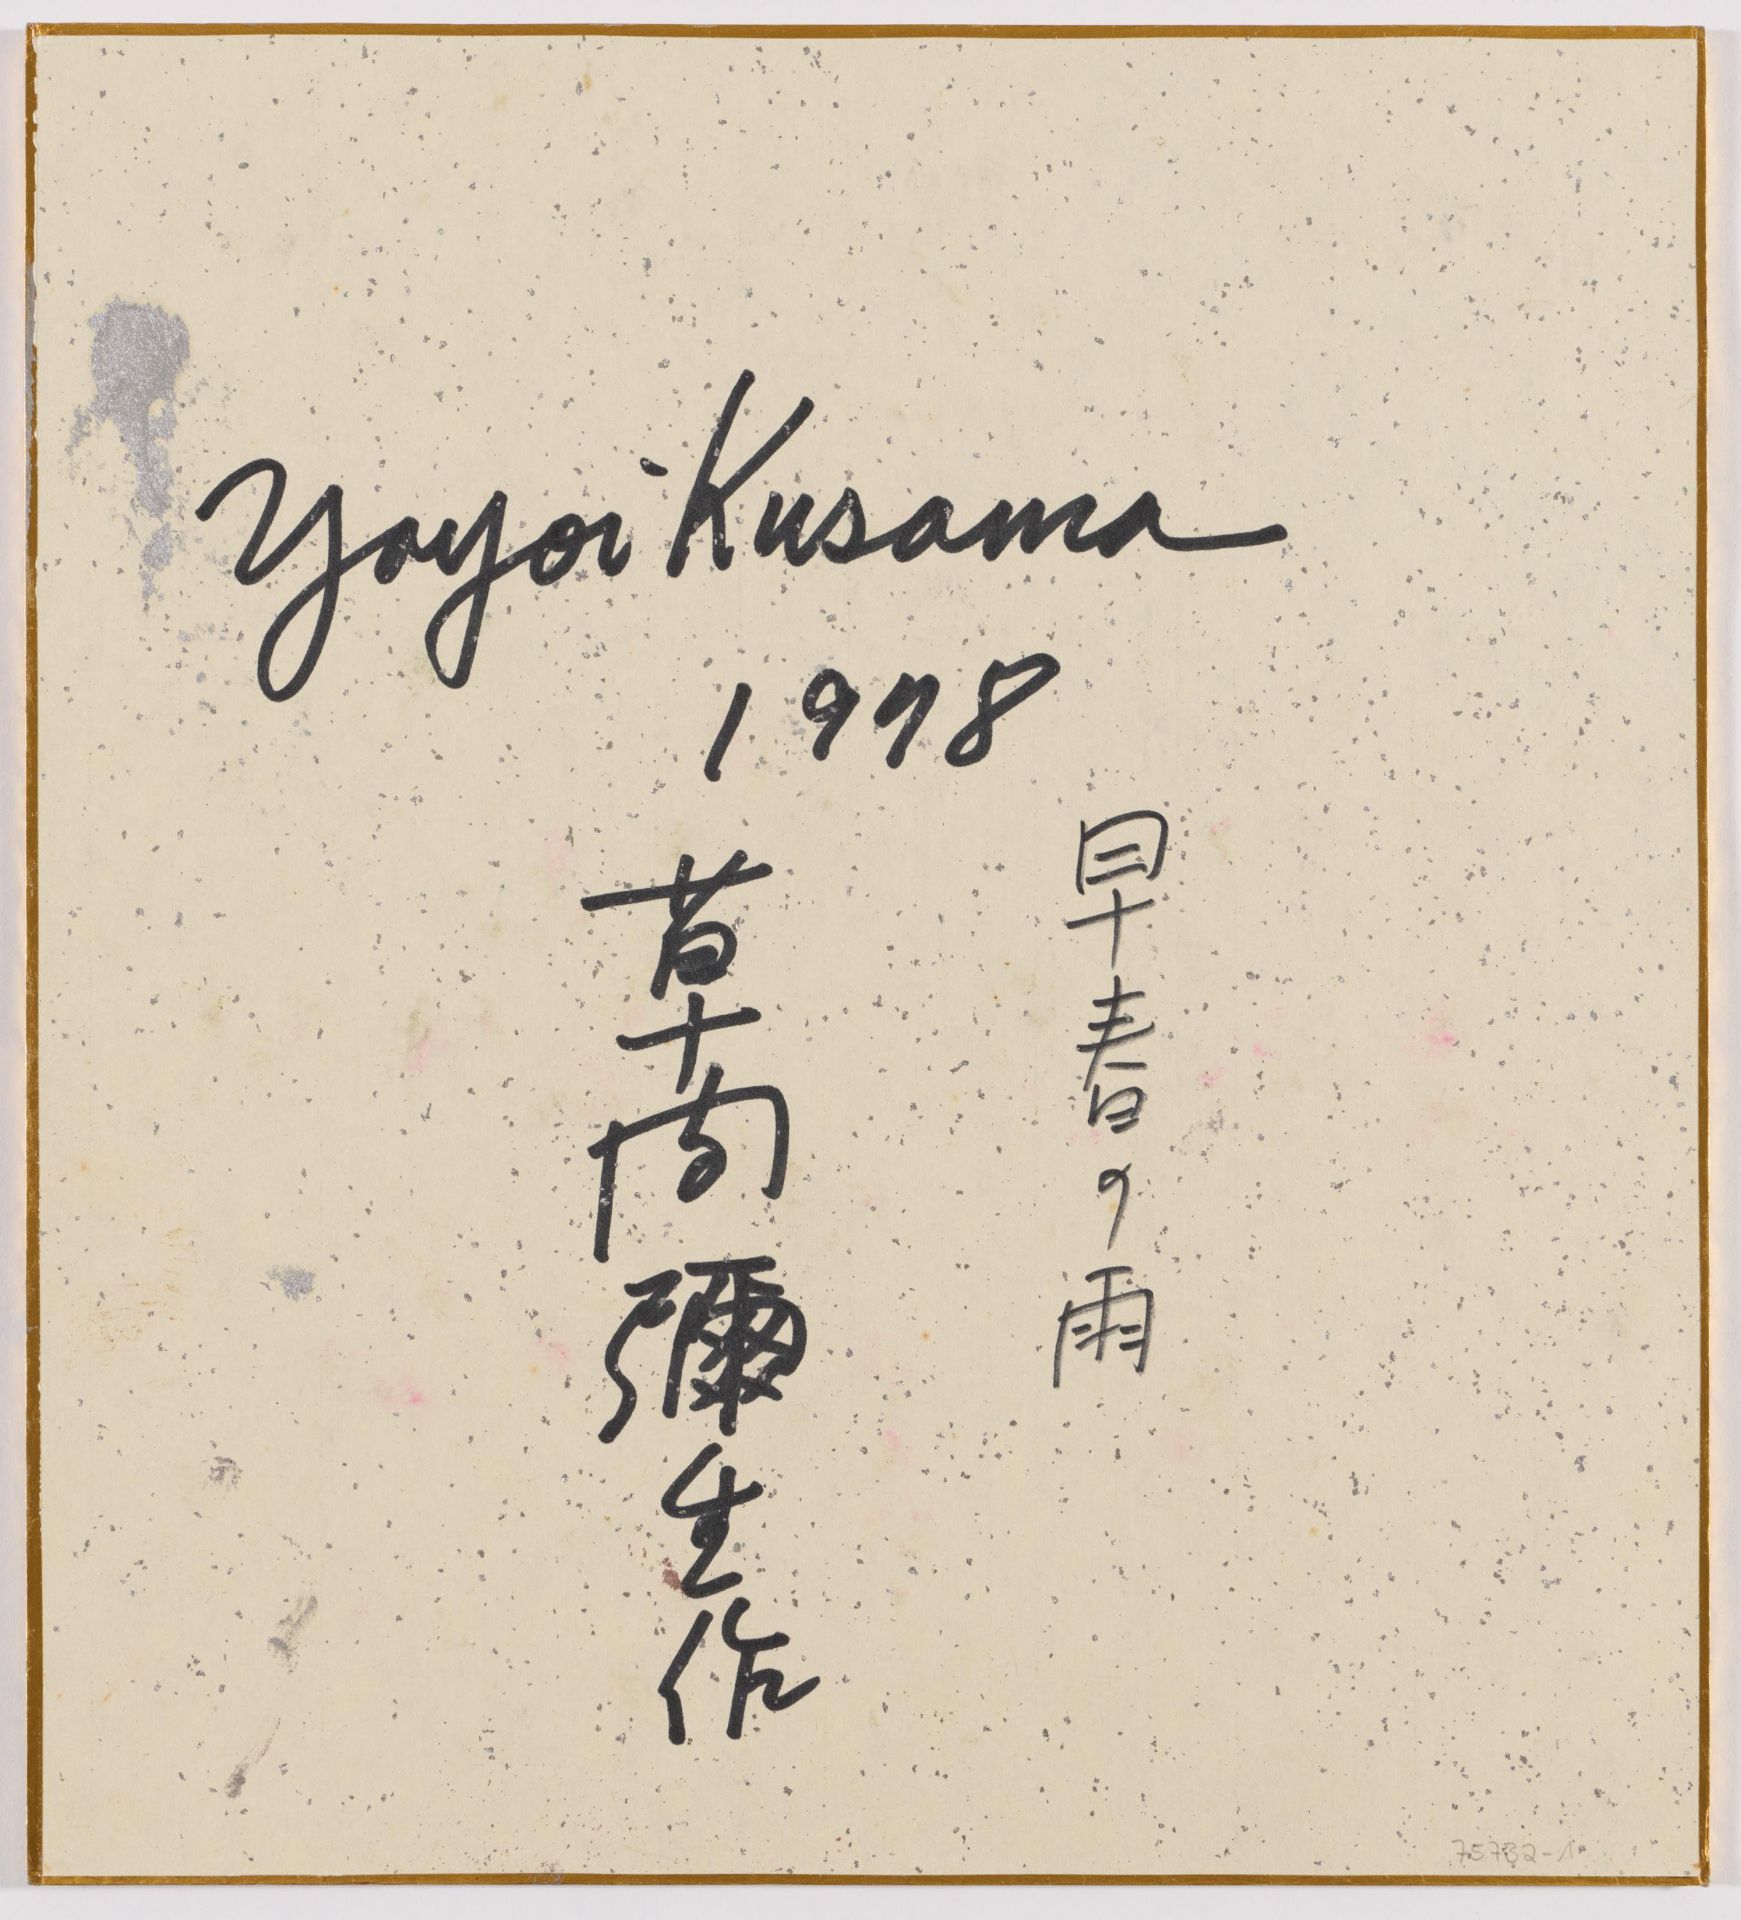 Yayoi Kusama
1978
早春の雨
草間彌生作
75732-1